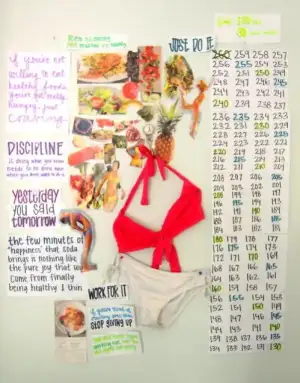 JUST DO IT.
if you're not
willing to eat
healthy foods
you're not really
hungry, just
craving
DISCIPLINE
is doing what you know
needs to be done even
when you don't want to do it
Yesterday
you said
tomorrow
the few minutes of
"happiness" that soda
brings is nothing like
the pure joy that will
come from finally
being healthy & thin
WORK FOR IT
if you're tired of
starting over
STOP GIVING UP
260 259 258 257
256 255 254 253
252 251 250 249
248 247 246 245
244 243 242 241
240 239 238 237
236 235 234 233
232 231 230 229
228 227 226 225
224 223 222 221
220 219 218 217
216 215 214 213
212 211 210 209
208 207 206 205
204 203 202 201
200 199 198 197
196 195 194 193
192 191 190 189
188 187 186 185
184 183 182 181
180 179 178 177
176 175 174 173
172 171 170 169
168 167 166 165
164 163 162 161
160 159 158 157
156 155 154 153
152 151 150 149
148 147 146 145
144 143 141 140
139 138 137 136 135
134 133 132 131 130